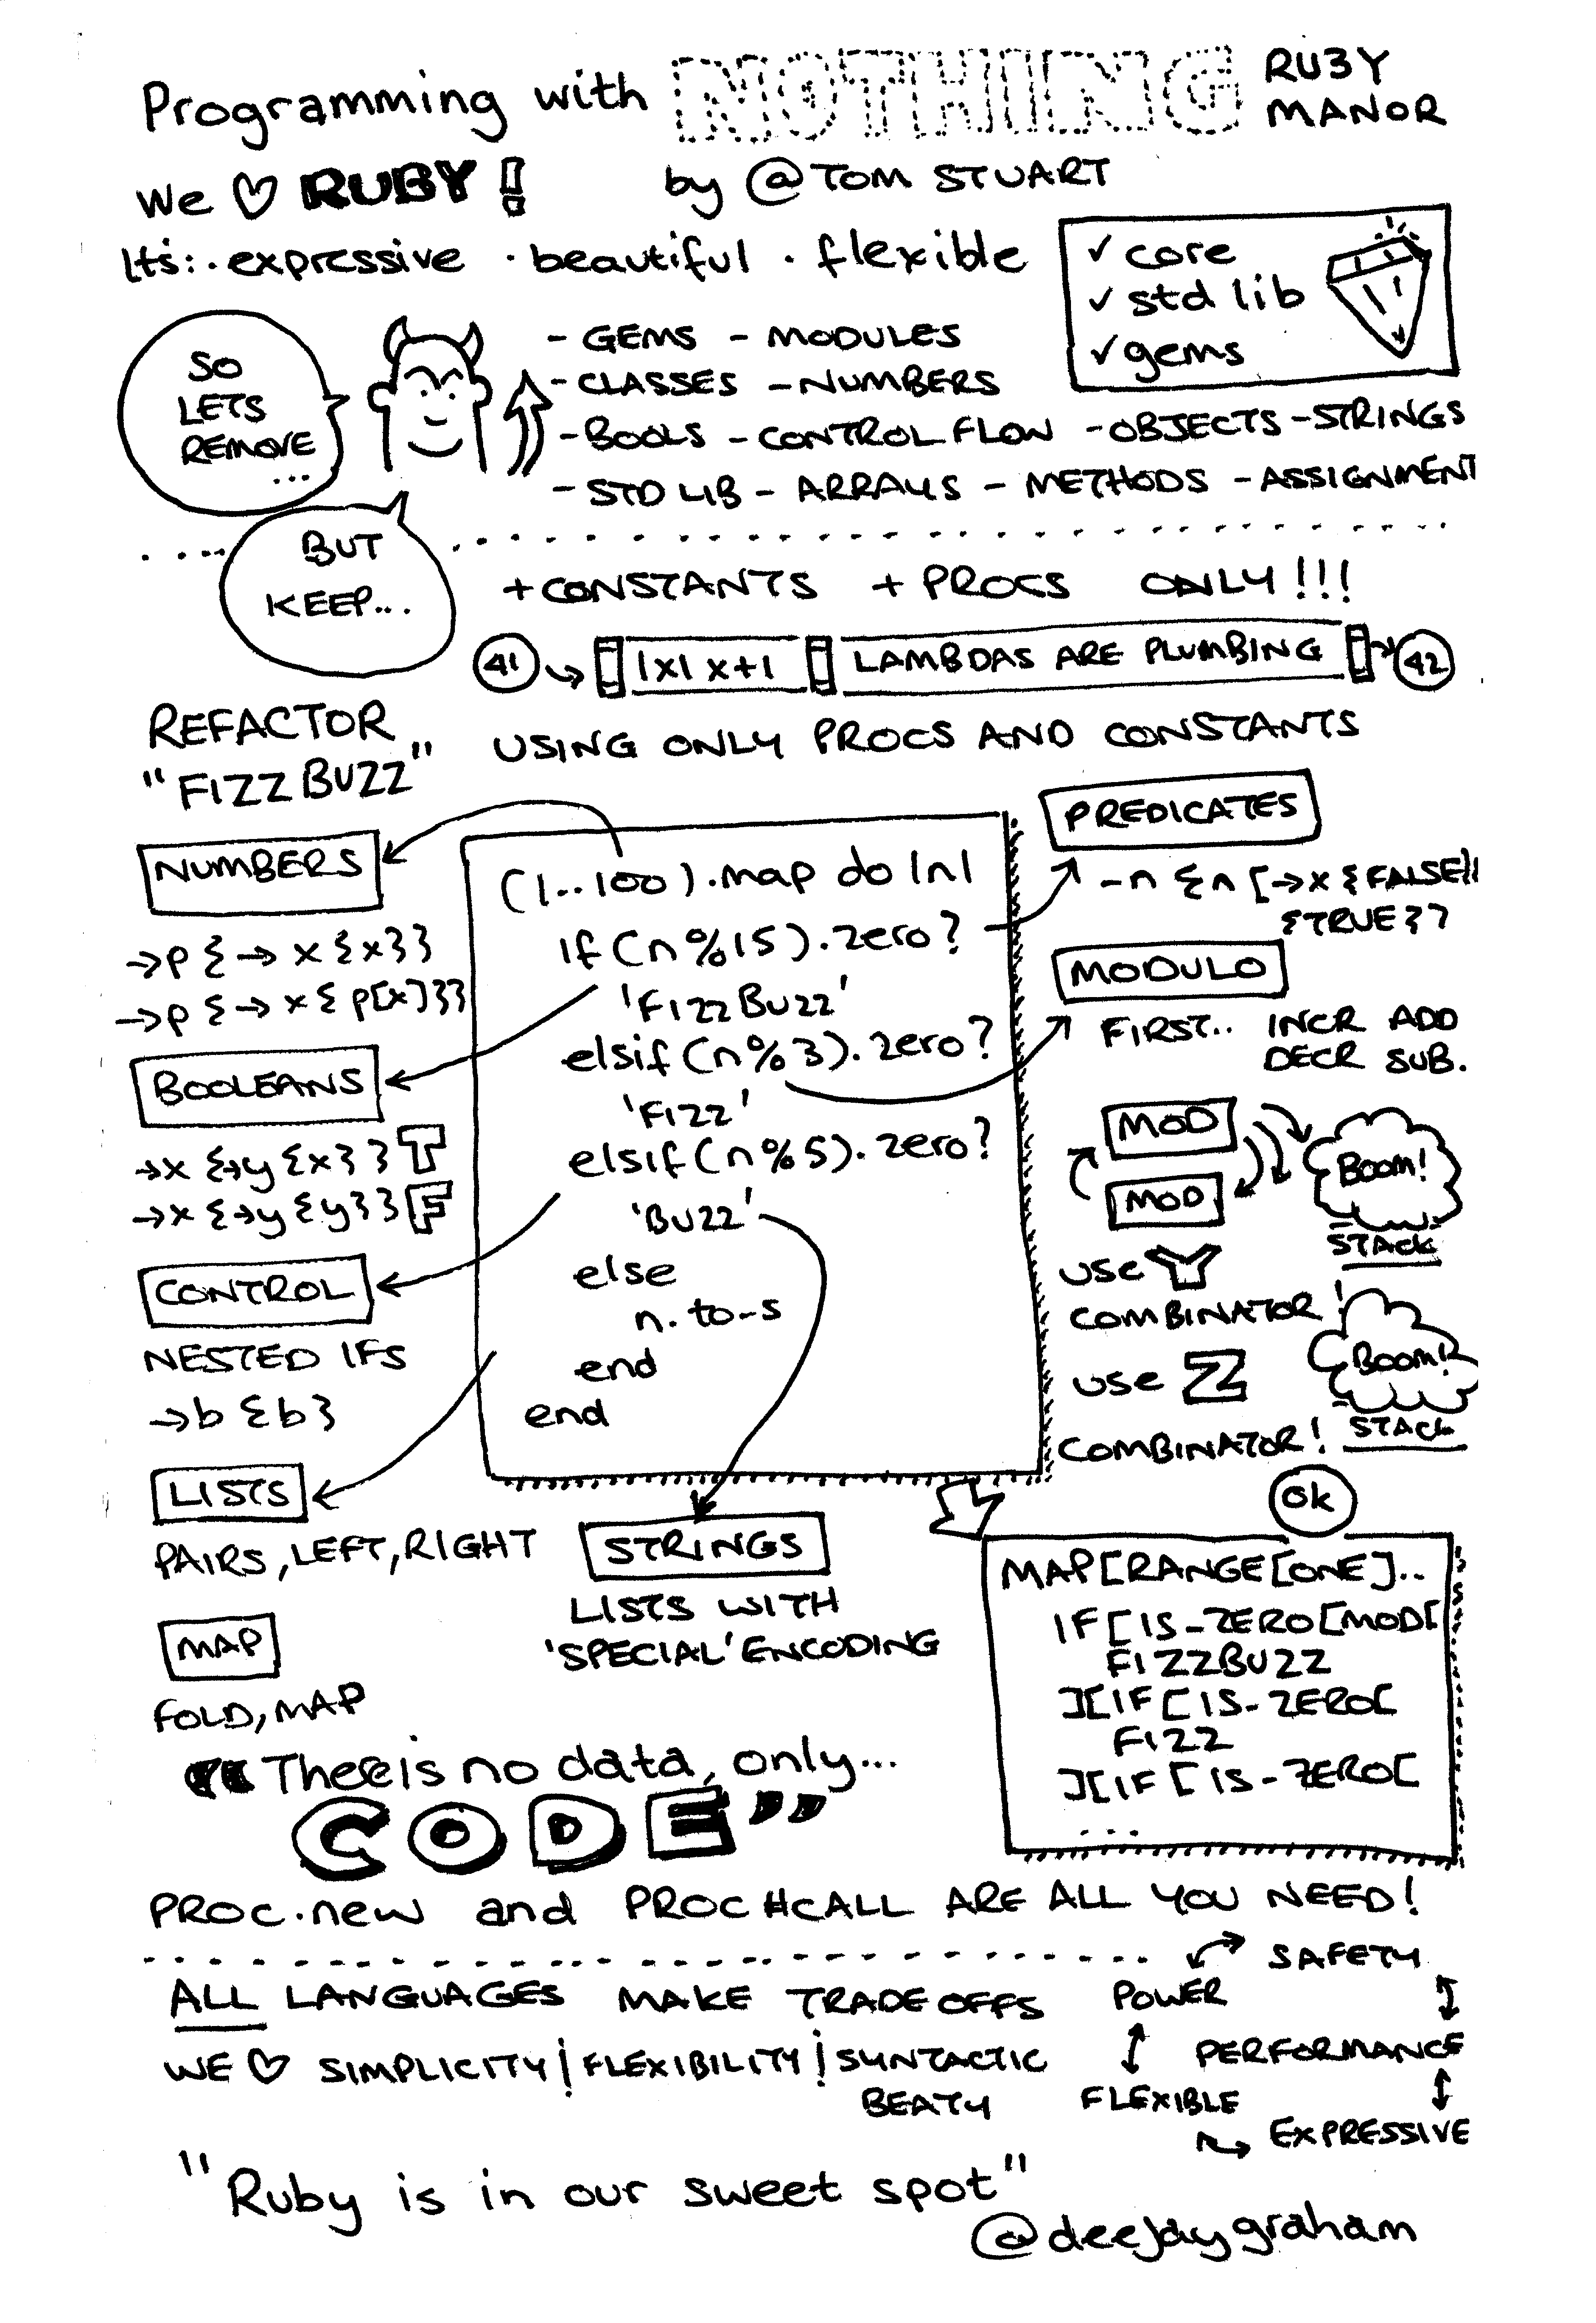 Programming with NOTHING RUBY MANOR
We ♡ RUBY! by @TOM STUART
It's: · expressive · beautiful · flexible
✓ core
✓ std lib
✓ gems
SO
LETS
REMOVE
...
- GEMS - MODULES
- CLASSES - NUMBERS
- BOOLS - CONTROL FLOW - OBJECTS - STRINGS
- STD LIB - ARRAYS - METHODS - ASSIGNMENT
BUT
KEEP...
+ CONSTANTS + PROCS ONLY!!!
41 |x| x+1 LAMBDAS ARE PLUMBING 42
REFACTOR
"FIZZBUZZ" USING ONLY PROCS AND CONSTANTS
NUMBERS
→p {→ x {x}}
→p {→ x { p[x]}}
BOOLEANS
→x {→y {x}} T
→x {→y {y}} F
CONTROL
NESTED IFS
→b {b}
LISTS
PAIRS, LEFT, RIGHT
MAP
FOLD, MAP
(1..100).map do |n|
if (n%15).zero?
'FIZZBUZZ'
elsif (n%3).zero?
'FIZZ'
elsif (n%5).zero?
'BUZZ'
else
n.to-s
end
end
STRINGS
LISTS WITH
'SPECIAL' ENCODING
PREDICATES
-n {n [→x {FALSE}]
{TRUE}}
MODULO
FIRST.. INCR ADD
DECR SUB.
MOD
MOD
BOOM!
STACK
USE Y
COMBINATOR!
BOOM!
STACK
USE Z
COMBINATOR!
OK
MAP[RANGE[ONE]..
IF[IS-ZERO[MOD[
FIZZBUZZ
][IF[IS-ZERO[
FIZZ
][IF[IS-ZERO[
...
"There is no data, only...
CODE"
PROC.new and PROC#CALL ARE ALL YOU NEED!
ALL LANGUAGES MAKE TRADE OFFS
WE ♡ SIMPLICITY! FLEXIBILITY! SYNTACTIC
BEATY
SAFETY
POWER
PERFORMANCE
FLEXIBLE
EXPRESSIVE
"Ruby is in our sweet spot"
@deejaygraham